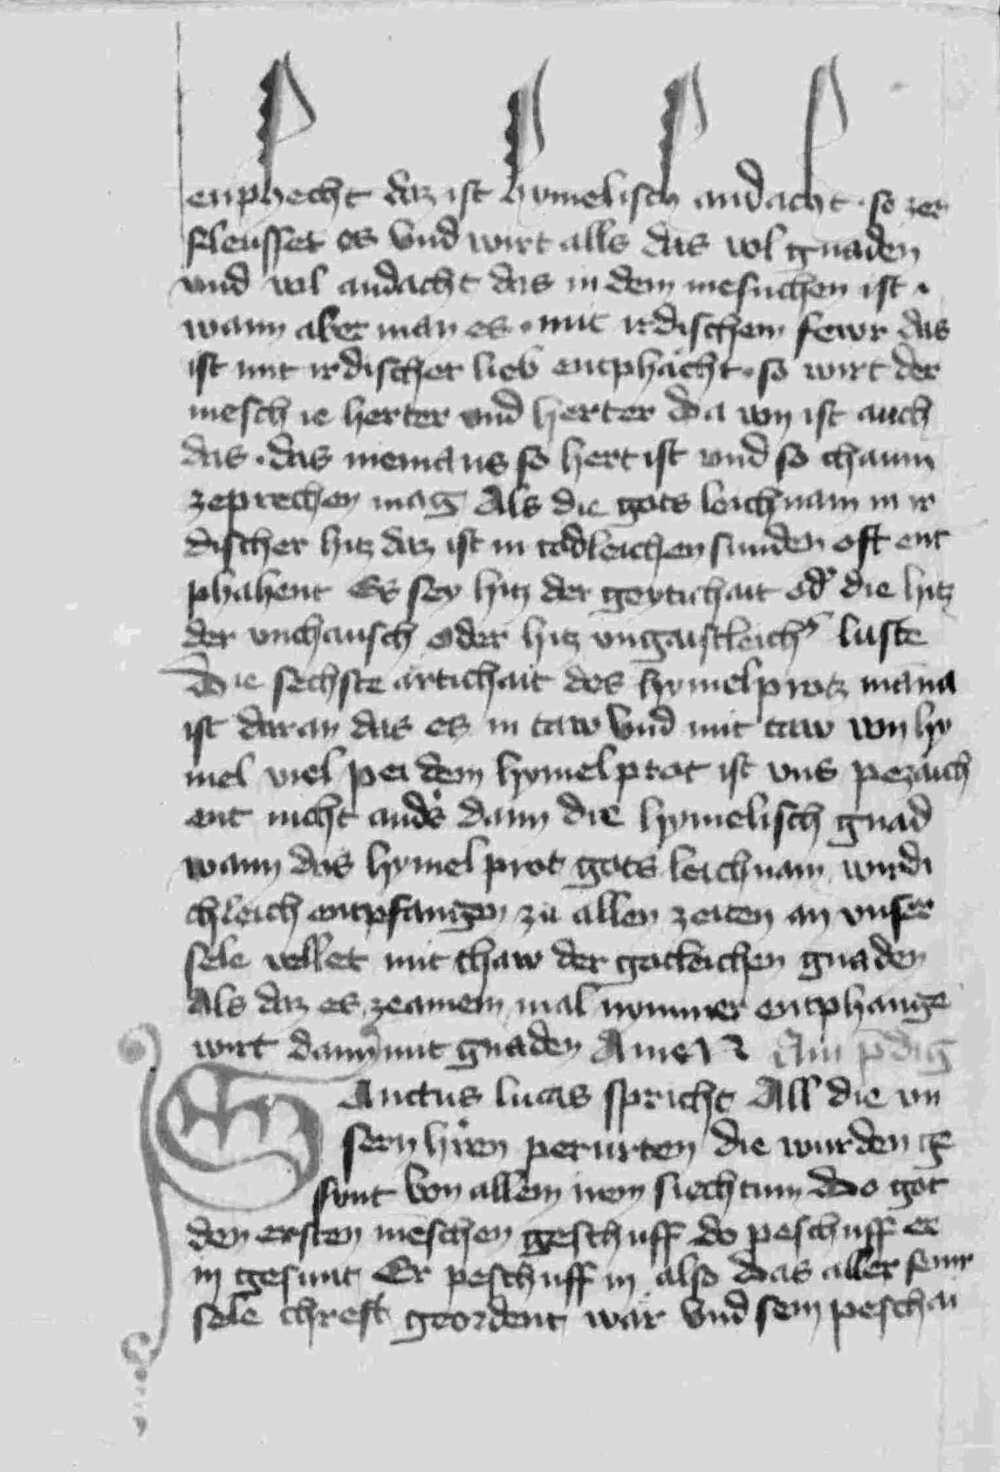 enphecht daz ist hymelisch andacht · so zer
fleusset es vnd wirt alls das vol gnaden
vnd vol andacht das in dem meschen ist ·
wann aber man es · mit irdischem fewr das
ist mit irdischer lieb entphächt · so wirt der
mesch ie herter vnd herter Da von ist auch
das · das niemans so hert ist vnd so chaum
zeprechen mag Als die gots leichnam in ir
discher hitz daz ist in todleichen sunden oft ent
phahent Es sey hitz der geytichait od' die hitz
der vnchausch oder hitz vngaistleich' luste
Die sechste artichait des hymelprotz mana
ist daran das es in taw vnd mit taw von hy
mel viel pei dem hymelprot ist vns pezaich
ent nicht and's dann die hymelisch gnad
wann das hymelprot gots leichnam wirdi
chleich entpfangen zu allen zeiten an vnser
sele vellet mit thaw der gotleichen gnaden
Als daz es zeainem mal nymmer entphange
wirt dann mit gnaden Amen Ain pdig
Sanctus lucas spricht All die vn
sern h'ren perurten die wurden ge
sunt von allem irem siechtum Do got
den ersten meschen geschuff do peschuff er
in gesunt Er peschuff in also das aller seinr
sele chreft geordent wär vnd sein peschai